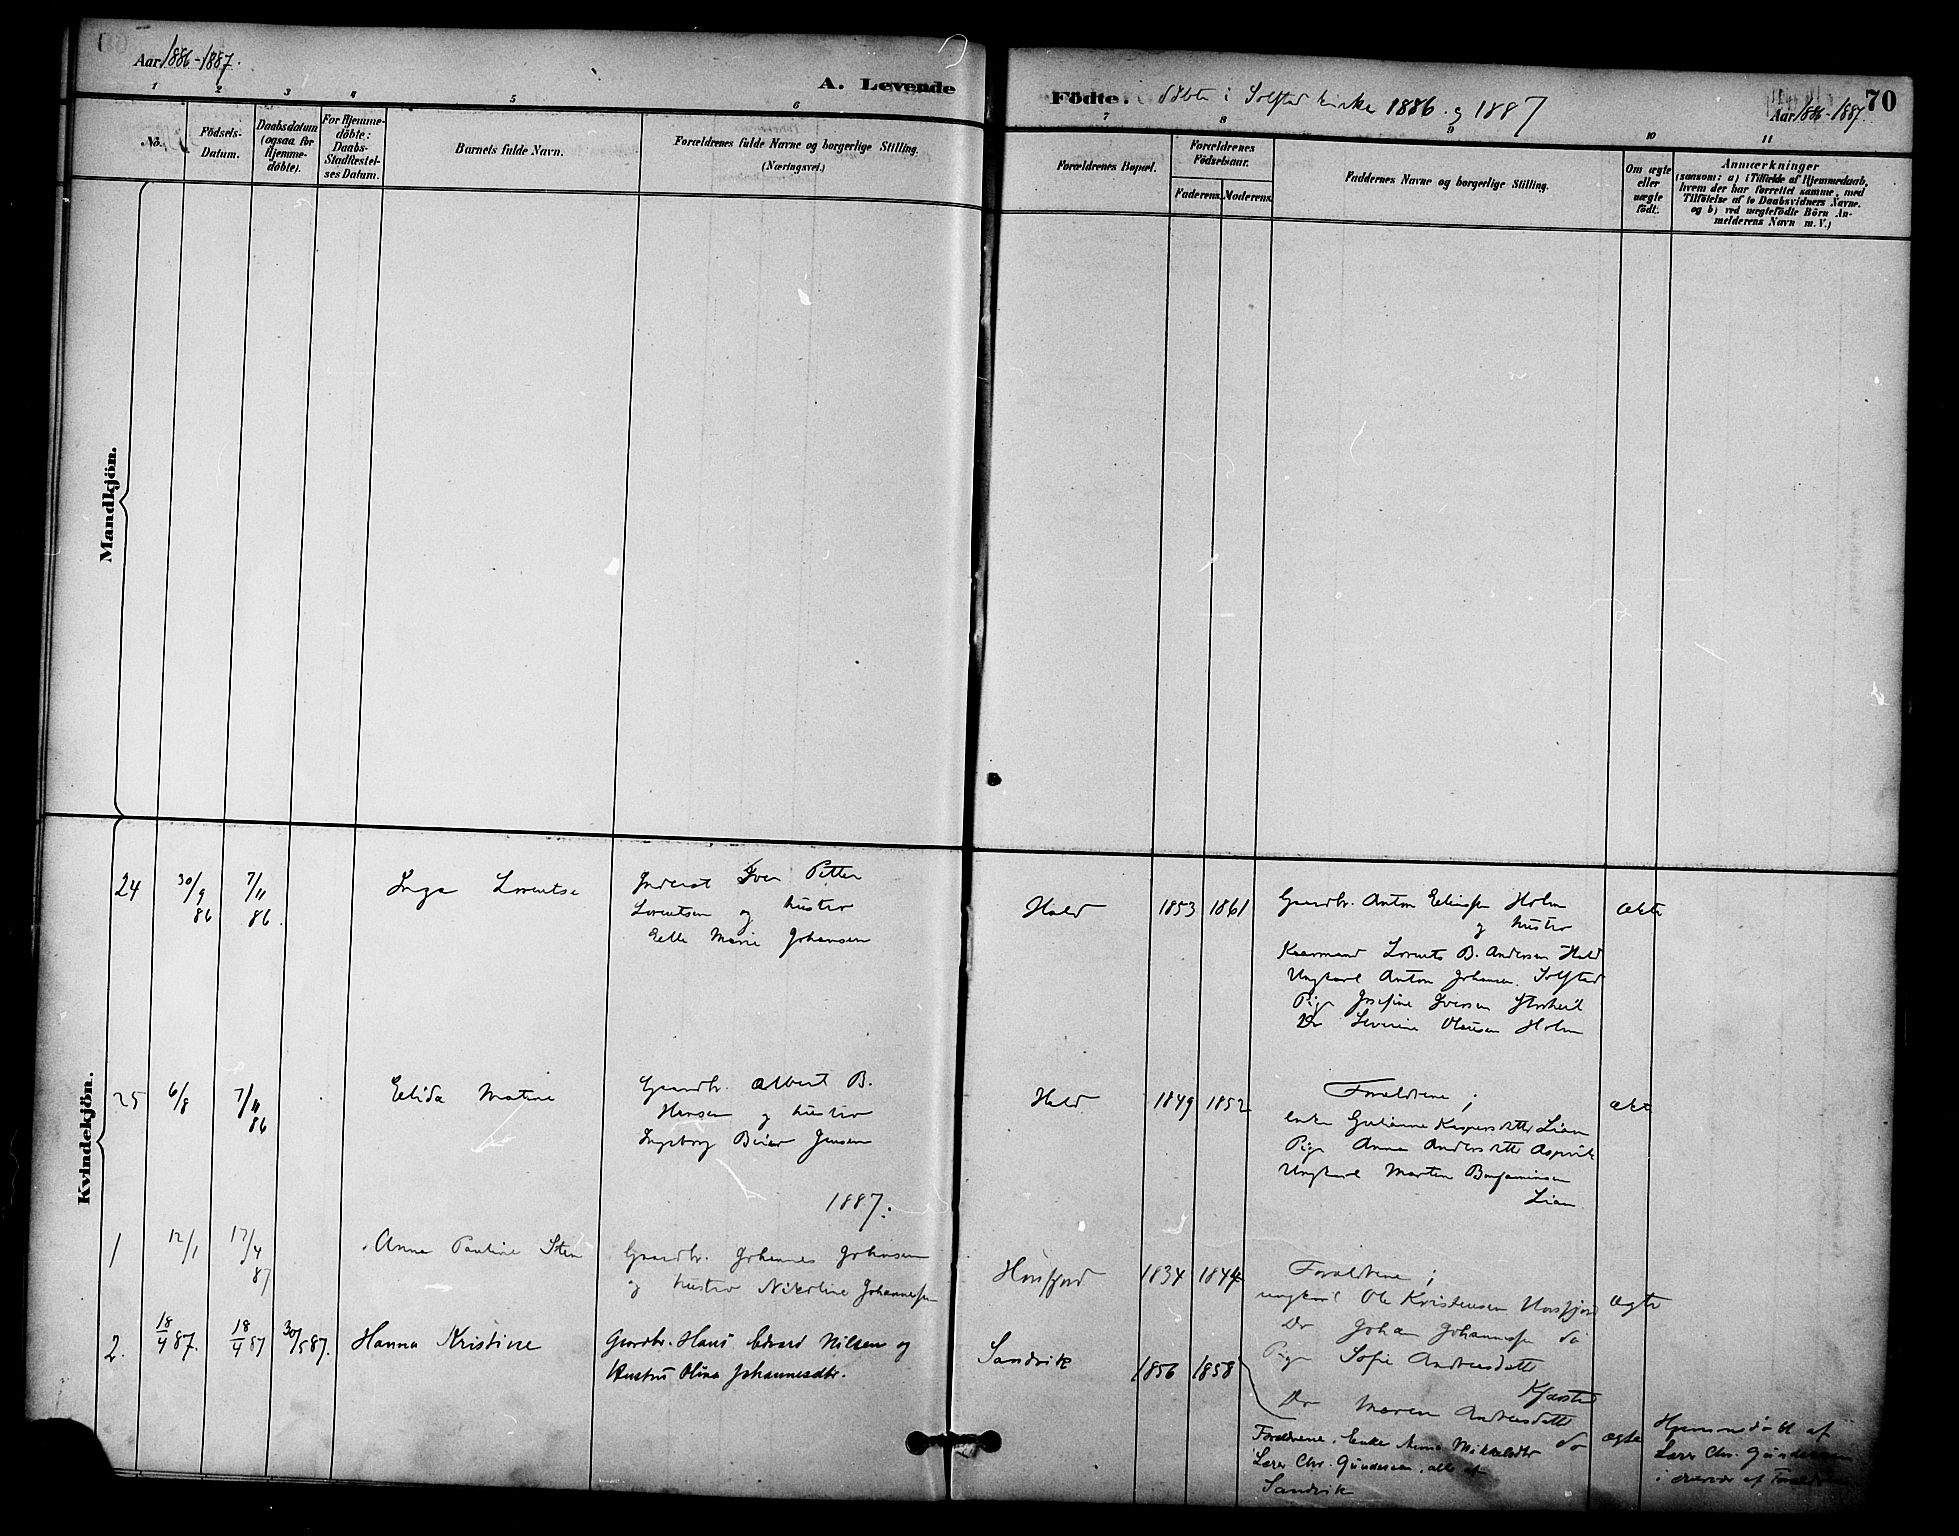 Aar 1886-1887.
A. Levende
Födte. døbte i Solstad Kirke 1886 og 1887
Aar 1886-1887.
70
1 2 3 4 5 6 7 8 9 10 11
No.
Födsels-
Datum.
Daabsdatum
(ogsaa for
Hjemme-
döbte).
For Hjemme-
döbte:
Daabs-
Stadfæstel-
ses Datum.
Barnets fulde Navn.
Forældrenes fulde Navne og borgerlige Stilling.
(Næringsvei.)
Forældrenes Bopæl.
Forældrenes
Födselsaar.
Faderens. Moderens.
Faddernes Navne og borgerlige Stilling.
Om ægte
eller
uægte
födt.
Anmærkninger
(saasom: a) i Tilfælde af Hjemmedaab,
hvem der har forrettet samme, med
Tilföielse af to Daabsvidners Navne.
og b) ved uægtefödte Börn An-
melderens Navn m.V.)
Mandkjön.
Kvindekjön.
24 30/9 86 7/11 86. Inga Lorentse
Inderst Iver Petter
Lorentsen og hustro
Elle Marie Johansen
Hald 1853 1861
Gaardbr. Anton Holm
og hustro
Kaarmand Lorents B. Andersen Hald
Ungkarl Anton Johansen Solstad
Pige Josefine Iversen
Do Severine Olausen Holm
ækte
25 6/8 7/11 86 Elida Matine
Gaardbr. Albert B.
Hansen og hustro
Ingeborg Beier Jensen
Hald 1849 1852
Forældrene;
Enke Kaspersdatter Lian
Pige Anna Andersdatter Aspvik
Ungkarl Morten Benjaminsen
Lian
ækt
1887.
1 12/1 17/4 87 Anna Pauline Sten
Gaardbr. Johannes Johansen
og hustro Nikoline Johannessen
Horsfjord 1834 1844
Forældrene;
ungkarl Ole Kristensen Horsfjord
Do Johan Johannessen do
Pige Sofie Andersdatter
Kjærstad
Do Maren Andreasdatter
do
ægte
2. 18/4 87. 18/4 87 30/5 87. Hanna Kristine
Gaardbr. Hans Edvard Nilsen og
Hustru Olina Johannesdtr.
Sandvik 1856 1858
Forældrene, Enke Anna Mikkelsdtr
Lærer Chr. Gundersen, alle af
Sandvik
ægte
Hjemmedøbt af
Lærer Chr. Gundersen
i overvær af Forældrene